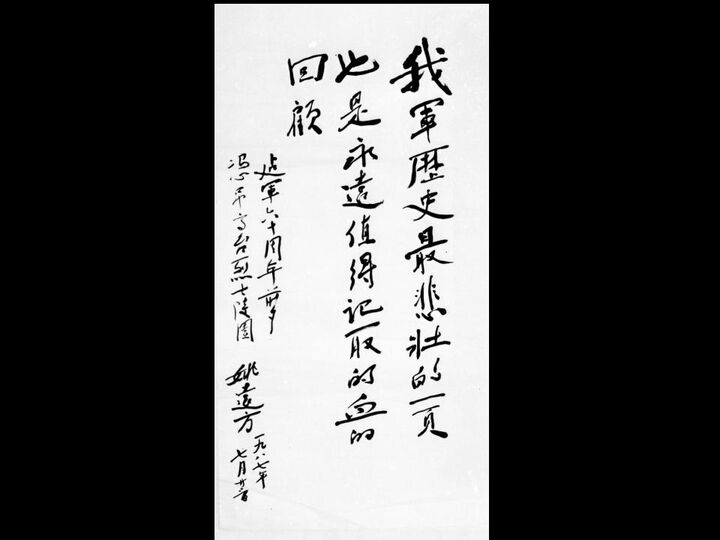 我軍歷史最悲壯的一頁
也是永遠值得記取的血的
回顧
建軍六十周年前夕
憑吊高台烈士陵園
姚遠方
一九八七年
七月廿二日